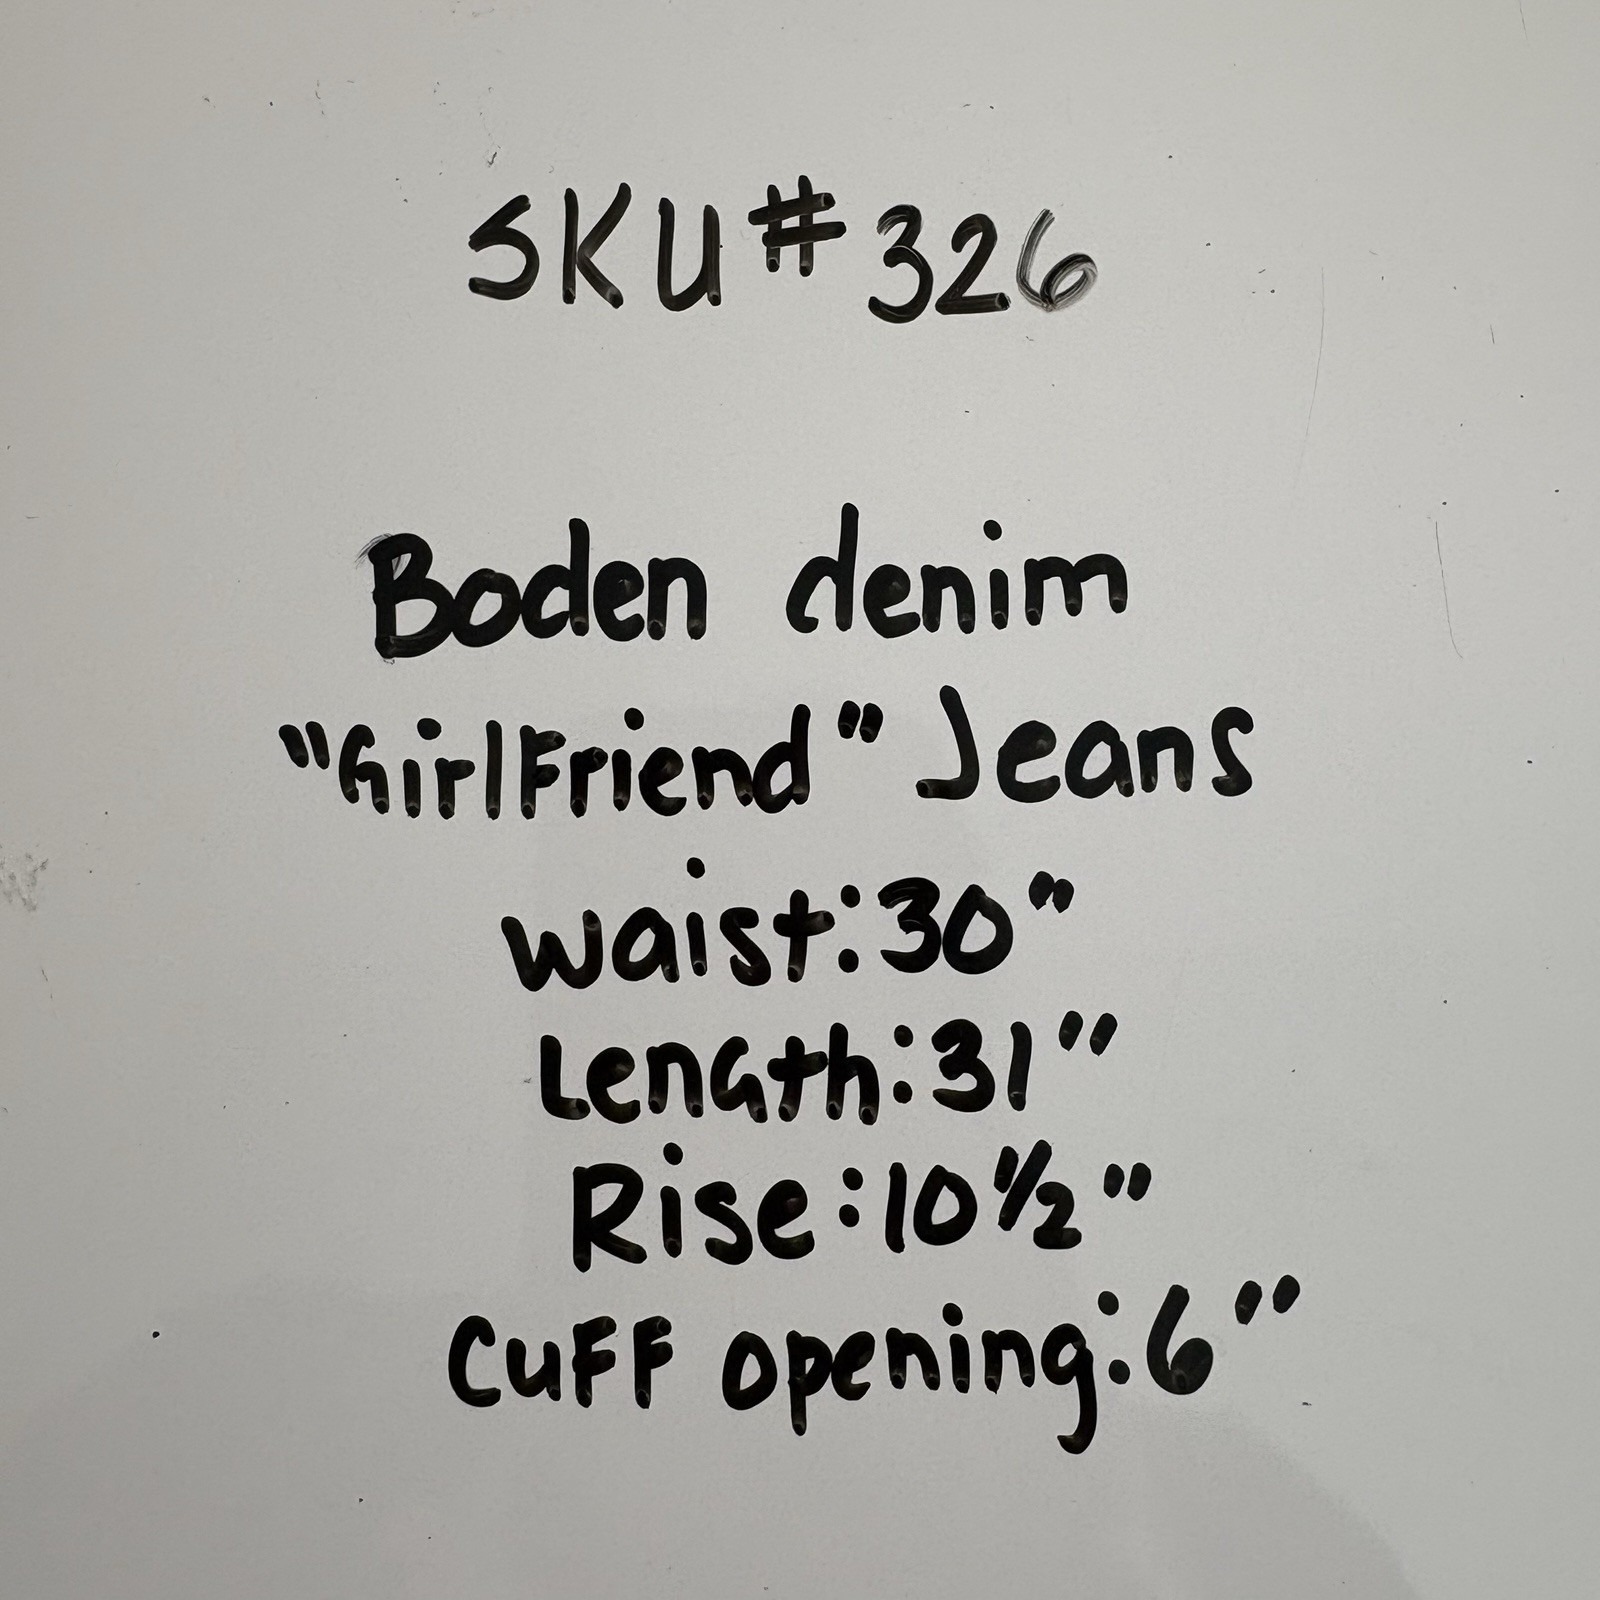 SKU#326
Boden denim
"GirlFriend" Jeans
Waist:30"
Length:31"
Rise:10½"
CuFF opening:6"